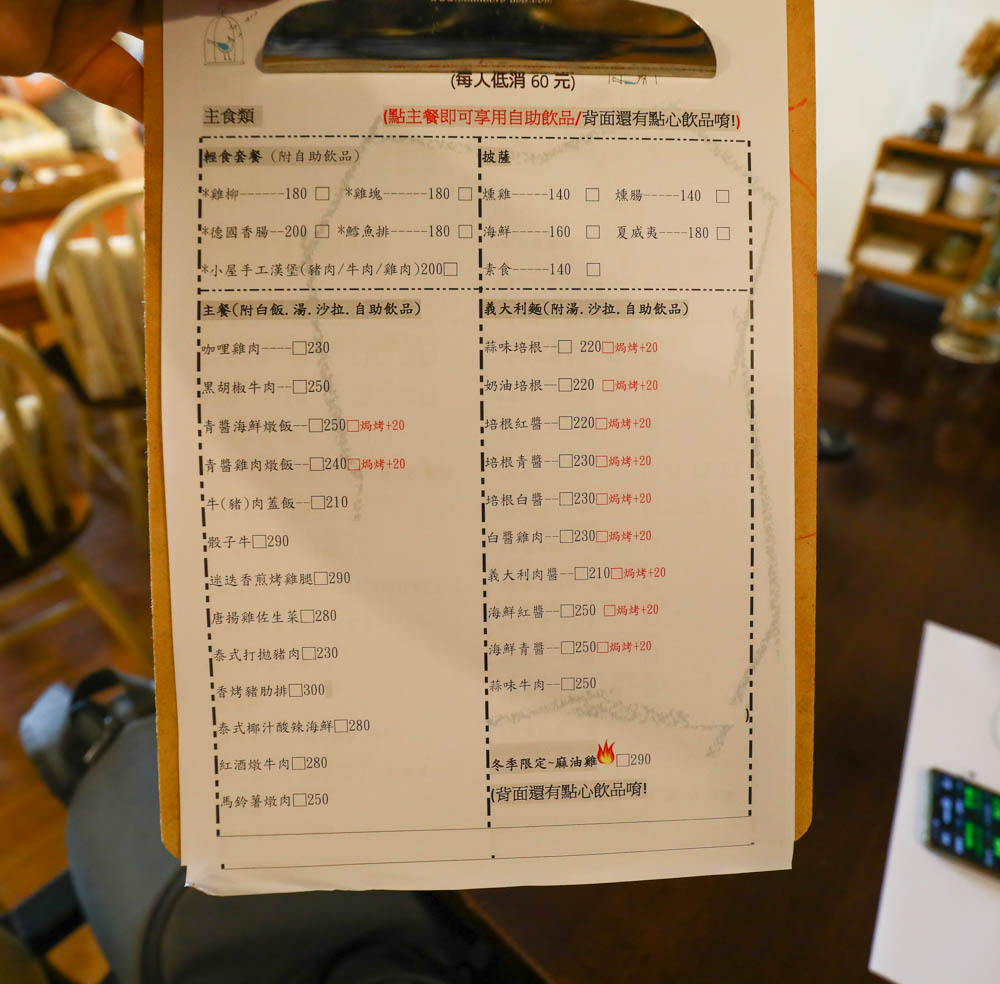 (每人低消 60 元)
主食類 (點主餐即可享用自助飲品/背面還有點心飲品唷!)
輕食套餐 (附自助飲品)
*雞柳------180 □ *雞塊------180 □
*德國香腸--200 □ *鱈魚排-----180 □
*小屋手工漢堡(豬肉/牛肉/雞肉)200□
披薩
燻雞-----140 □ 燻腸-----140 □
海鮮-----160 □ 夏威夷----180 □
素食-----140 □
主餐(附白飯.湯.沙拉.自助飲品)
咖哩雞肉----□230
黑胡椒牛肉--□250
青醬海鮮燉飯--□250□焗烤+20
青醬雞肉燉飯--□240□焗烤+20
牛(豬)肉蓋飯--□210
骰子牛□290
迷迭香煎烤雞腿□290
唐揚雞佐生菜□280
泰式打拋豬肉□230
香烤豬肋排□300
泰式椰汁酸辣海鮮□280
紅酒燉牛肉□280
馬鈴薯燉肉□250
義大利麵(附湯.沙拉.自助飲品)
蒜味培根--□ 220□焗烤+20
奶油培根--□220 □焗烤+20
培根紅醬--□220□焗烤+20
培根青醬--□230□焗烤+20
培根白醬--□230□焗烤+20
白醬雞肉--□230□焗烤+20
義大利肉醬--□210□焗烤+20
海鮮紅醬--□250 □焗烤+20
海鮮青醬--□250□焗烤+20
蒜味牛肉--□250
)
冬季限定~麻油雞🔥□290
(背面還有點心飲品唷!